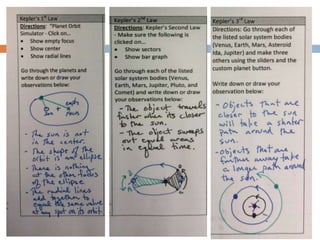 Kepler's 1st Law
Directions: "Planet Orbit
Simulator - Click on..
• Show empty focus
• Show center
• Show radial lines
Go through the planets and
write down or draw your
observations below:
empty
Sun
focus
- The sun is not
in the center.
- The shape of the
orbit is an ellipse
- There is nothing
at the other focus
of the ellipse
- The radial lines
add together to
equal the same value
at any spot on its orbit.
Kepler's 2nd Law
Directions: Kepler's Second Law
- Make sure the following is
clicked on...
• Show sectors
• Show bar graph
Go through each of the listed
solar system bodies (Venus,
Earth, Mars, Jupiter, Pluto, and
Comet) and write down or draw
your observations below:
- The object travels
faster when its closer
to the sun.
- The object sweeps
out equal areas
in equal time.
Kepler's 3rd Law
Directions: Go through each of
the listed solar system bodies
(Venus, Earth, Mars, Asteroid
Ida, Jupiter) and make three
others using the sliders and the
custom planet button.
Write down or draw your
observation below:
- Objects that are
closer to the sun
will take a shorter
path around the
sun.
- objects that are
further away take
a longer path around
the sun.